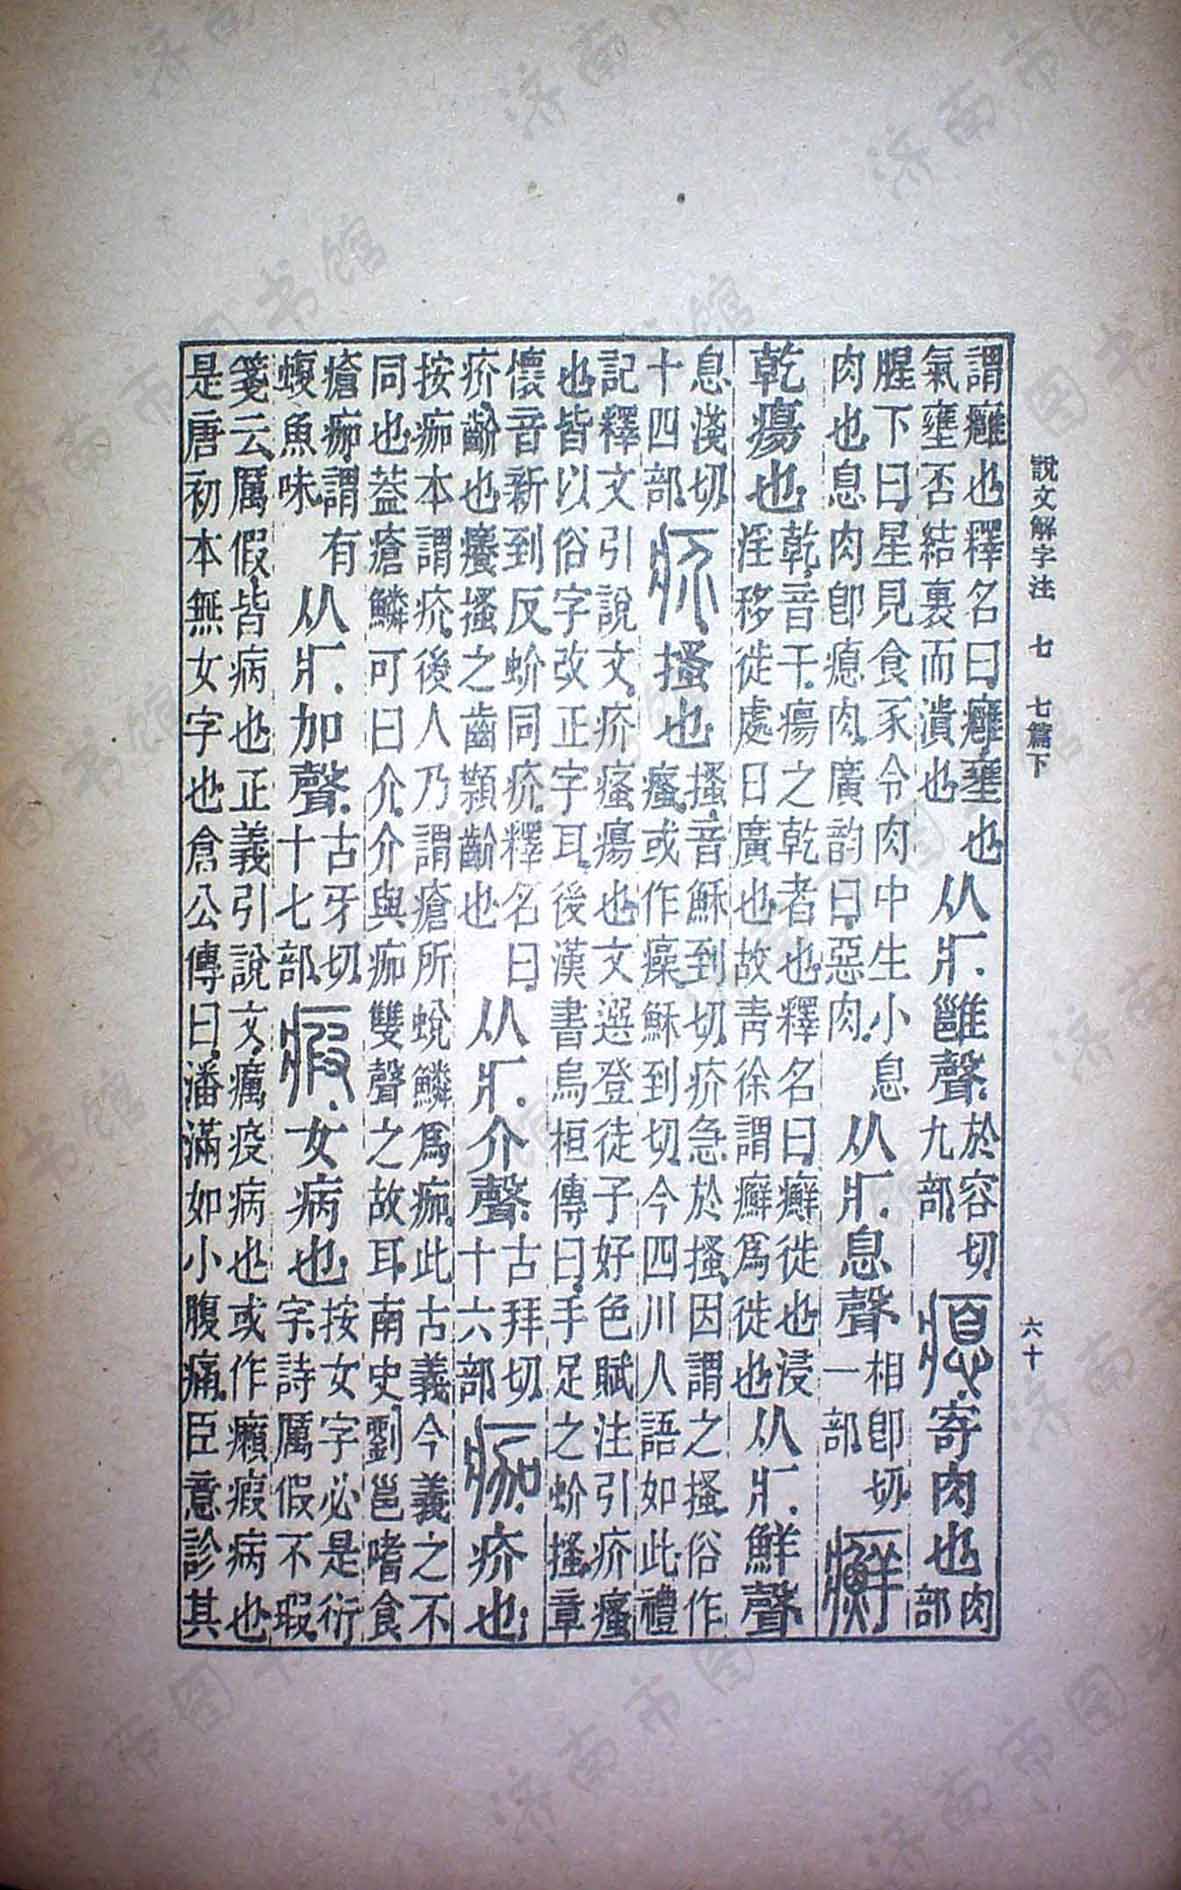 說文解字注 七 七篇下
六十
謂癰也釋名曰癰壅也
氣壅否結裏而潰也
从疒雝聲
於容切
九部
瘜寄肉也
肉
部
腥下曰星見食豕令肉中生小息
肉也息肉卽瘜肉廣韵曰惡肉
从疒息聲
相卽切
一部
癬
乾瘍也
乾音干瘍之乾者也釋名曰癬徙也浸
淫移徙處日廣也故青徐謂癬爲徙也
从疒鮮聲
息淺切
十四部
疥搔也
搔音穌到切疥急於搔因謂之搔俗作
瘙或作㿋穌到切今四川人語如此禮
記釋文引說文疥瘙瘍也文選登徒子好色賦注引疥瘙
也皆以俗字改正字耳後漢書烏桓傳曰手足之蚧搔章
懷音新到反蚧同疥釋名曰
疥齘也癢搔之齒類齘也
从疒介聲
古拜切
十六部
痂疥也
按痂本謂疥後人乃謂瘡所蛻鱗爲痂此古義今義之不
同也蓋瘡鱗可曰介介與痂雙聲之故耳南史劉邕嗜食
瘡痂謂有
鰒魚味
从疒加聲
古牙切
十七部
瘕女病也
按女字必是衍
字詩厲假不瑕
箋云厲假皆病也正義引說文癘疫病也或作癩瘕病也
是唐初本無女字也倉公傳曰潘滿如小腹痛臣意診其
济南市图书馆